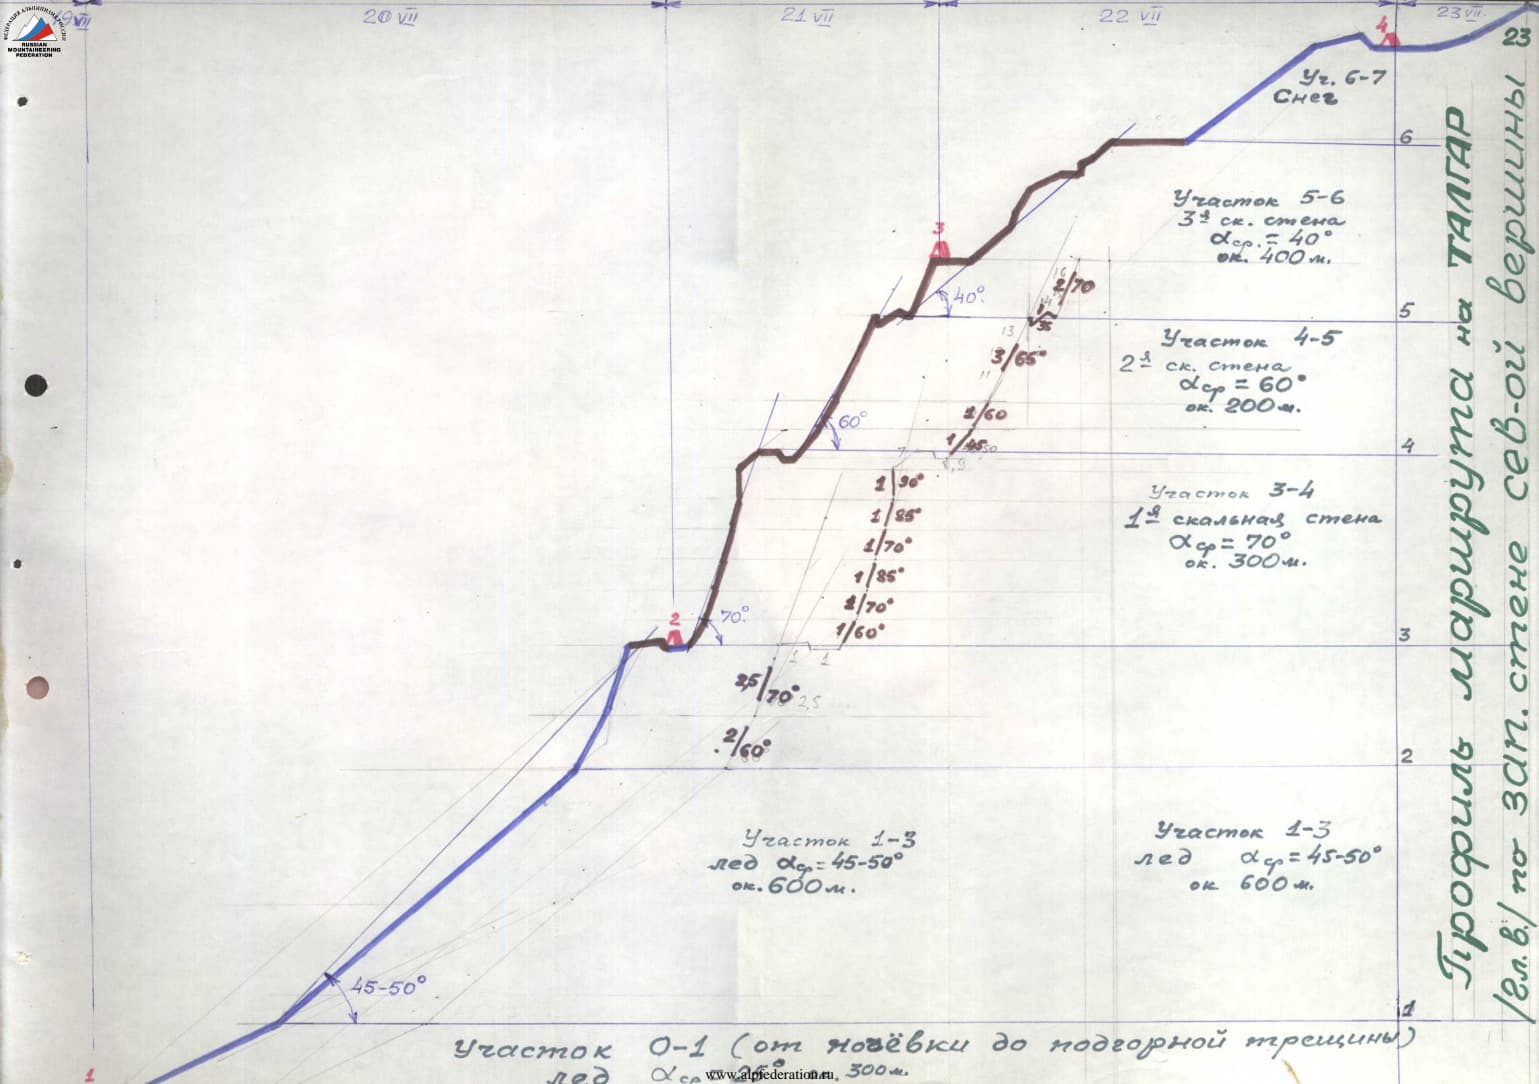 19 VII
20 VII
21 VII
22 VII
23 VII.
23
ФЕДЕРАЦИЯ АЛЬПИНИЗМА РОССИИ
RUSSIAN
MOUNTAINEERING
FEDERATION
4
Уч. 6-7
Снег
6
Участок 5-6
3я ск. стена
αср. = 40°
ок. 400 м.
3
40°
16
2/70
14
1
35
5
13
3/65°
11
Участок 4-5
2я ск. стена
αср = 60°
ок. 200 м.
60°
1/60
1/45
4
7
1 90°
1/85°
1/70°
1/85°
2/70°
1/60°
Участок 3-4
1я скальная стена
αср = 70°
ок. 300 м.
2
70°
3
1 1
2,5/70°
2,5
2/60°
2
Участок 1-3
лед αср = 45-50°
ок. 600 м.
Участок 1-3
лед αср = 45-50°
ок 600 м.
45-50°
1
Участок 0-1 (от ночёвки до подгорной трещины)
1
лед αср 300 м.
www.alpfederation.ru
Профиль маршрута на ТАЛГАР
/гл.в./ по зап. стене сев-ой вершины